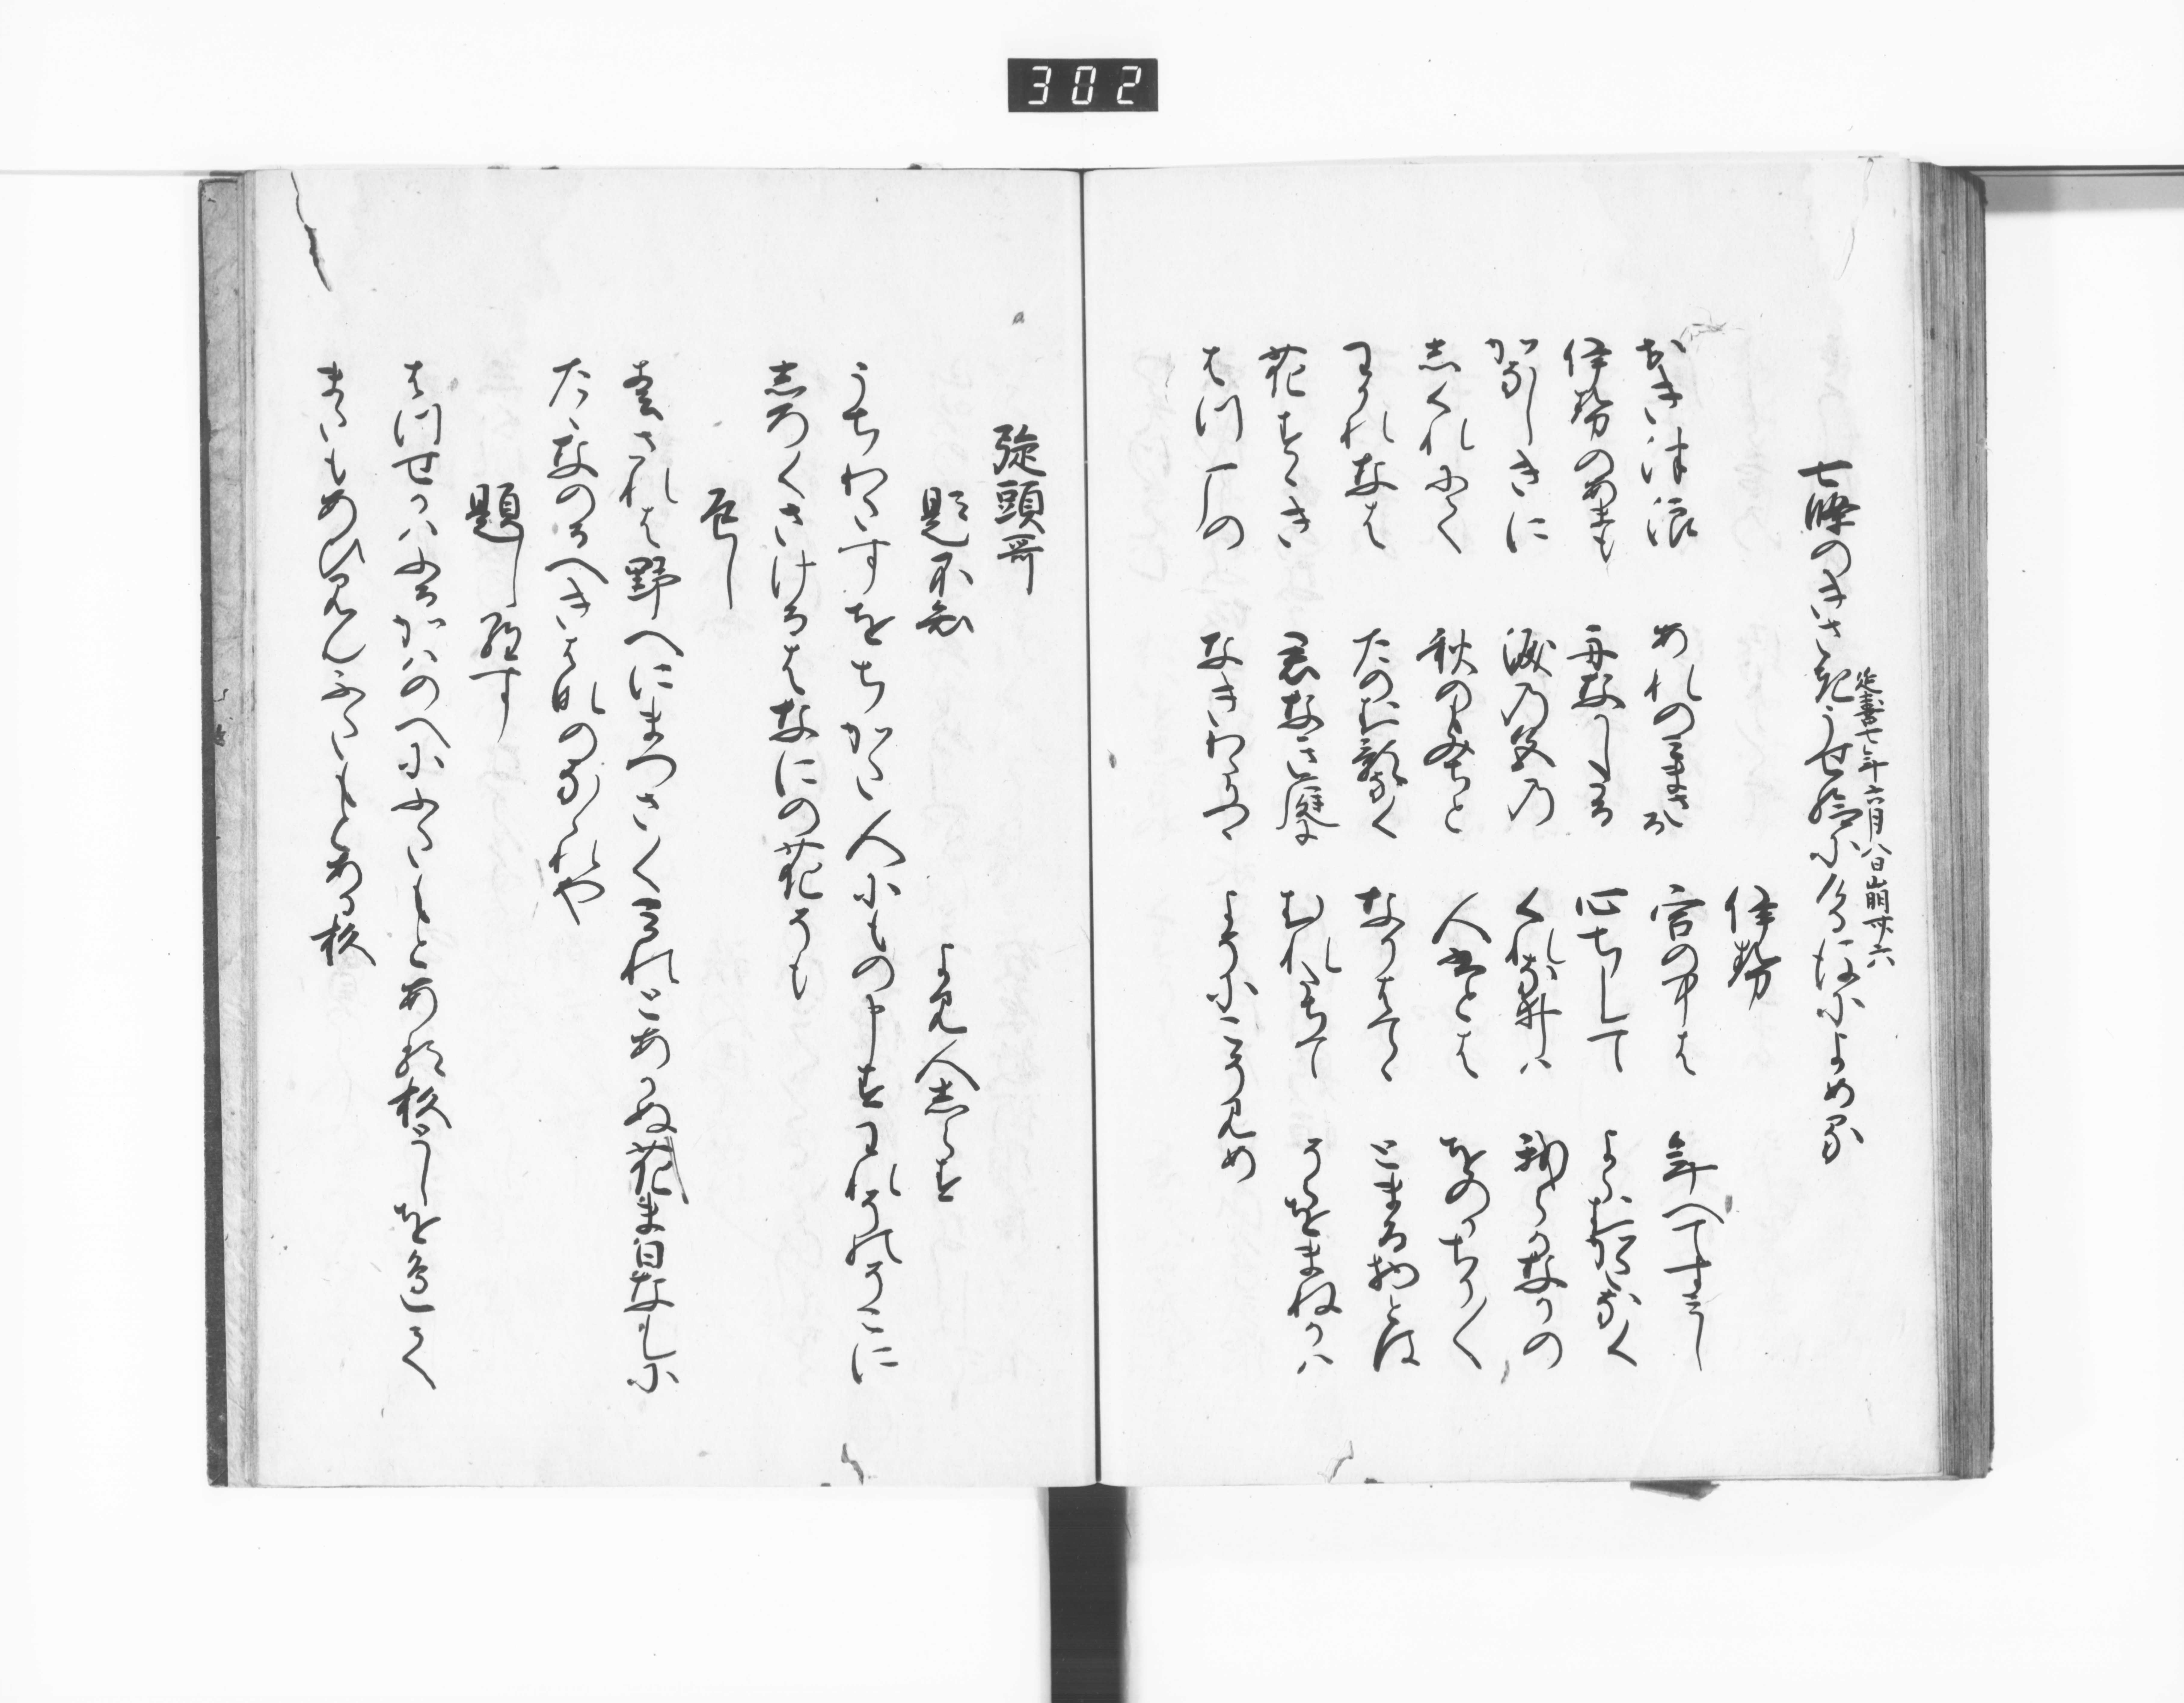 302
七條のきさきうせ給にけるのちによめる
延喜七年六月八日崩卅六
伊勢
おきつ浪 あれのみまさる 宮の中は 年へてすみし
伊勢のあまも 舟なかしたる 心ちして よらむ方なく
かなしきに 涙乃色の くれなゐハ 我らかなかの
しくれにて 秋のもみちと 人々は をのかちり〳〵
わかれなは たのむ方なく なりはてゝ とまる物とは
花すゝき 君なき庭に むれたちて そらをまねかハ
はつ厂の なきわたりつゝ よそにこそ見め
旋頭哥
題不知 よみ人しらす
うちわたすをちかた人にもの申すわれそのそこに
しろくさけるはなにの花そも
返し
春されは野へにまつさく見れとあかぬ花まひなしに
たゝなのるへきはなのななれや
題しらす
はつせかハふるかハのへにふたもとある杉としを邊て
またもあひ見んふたもとある杉